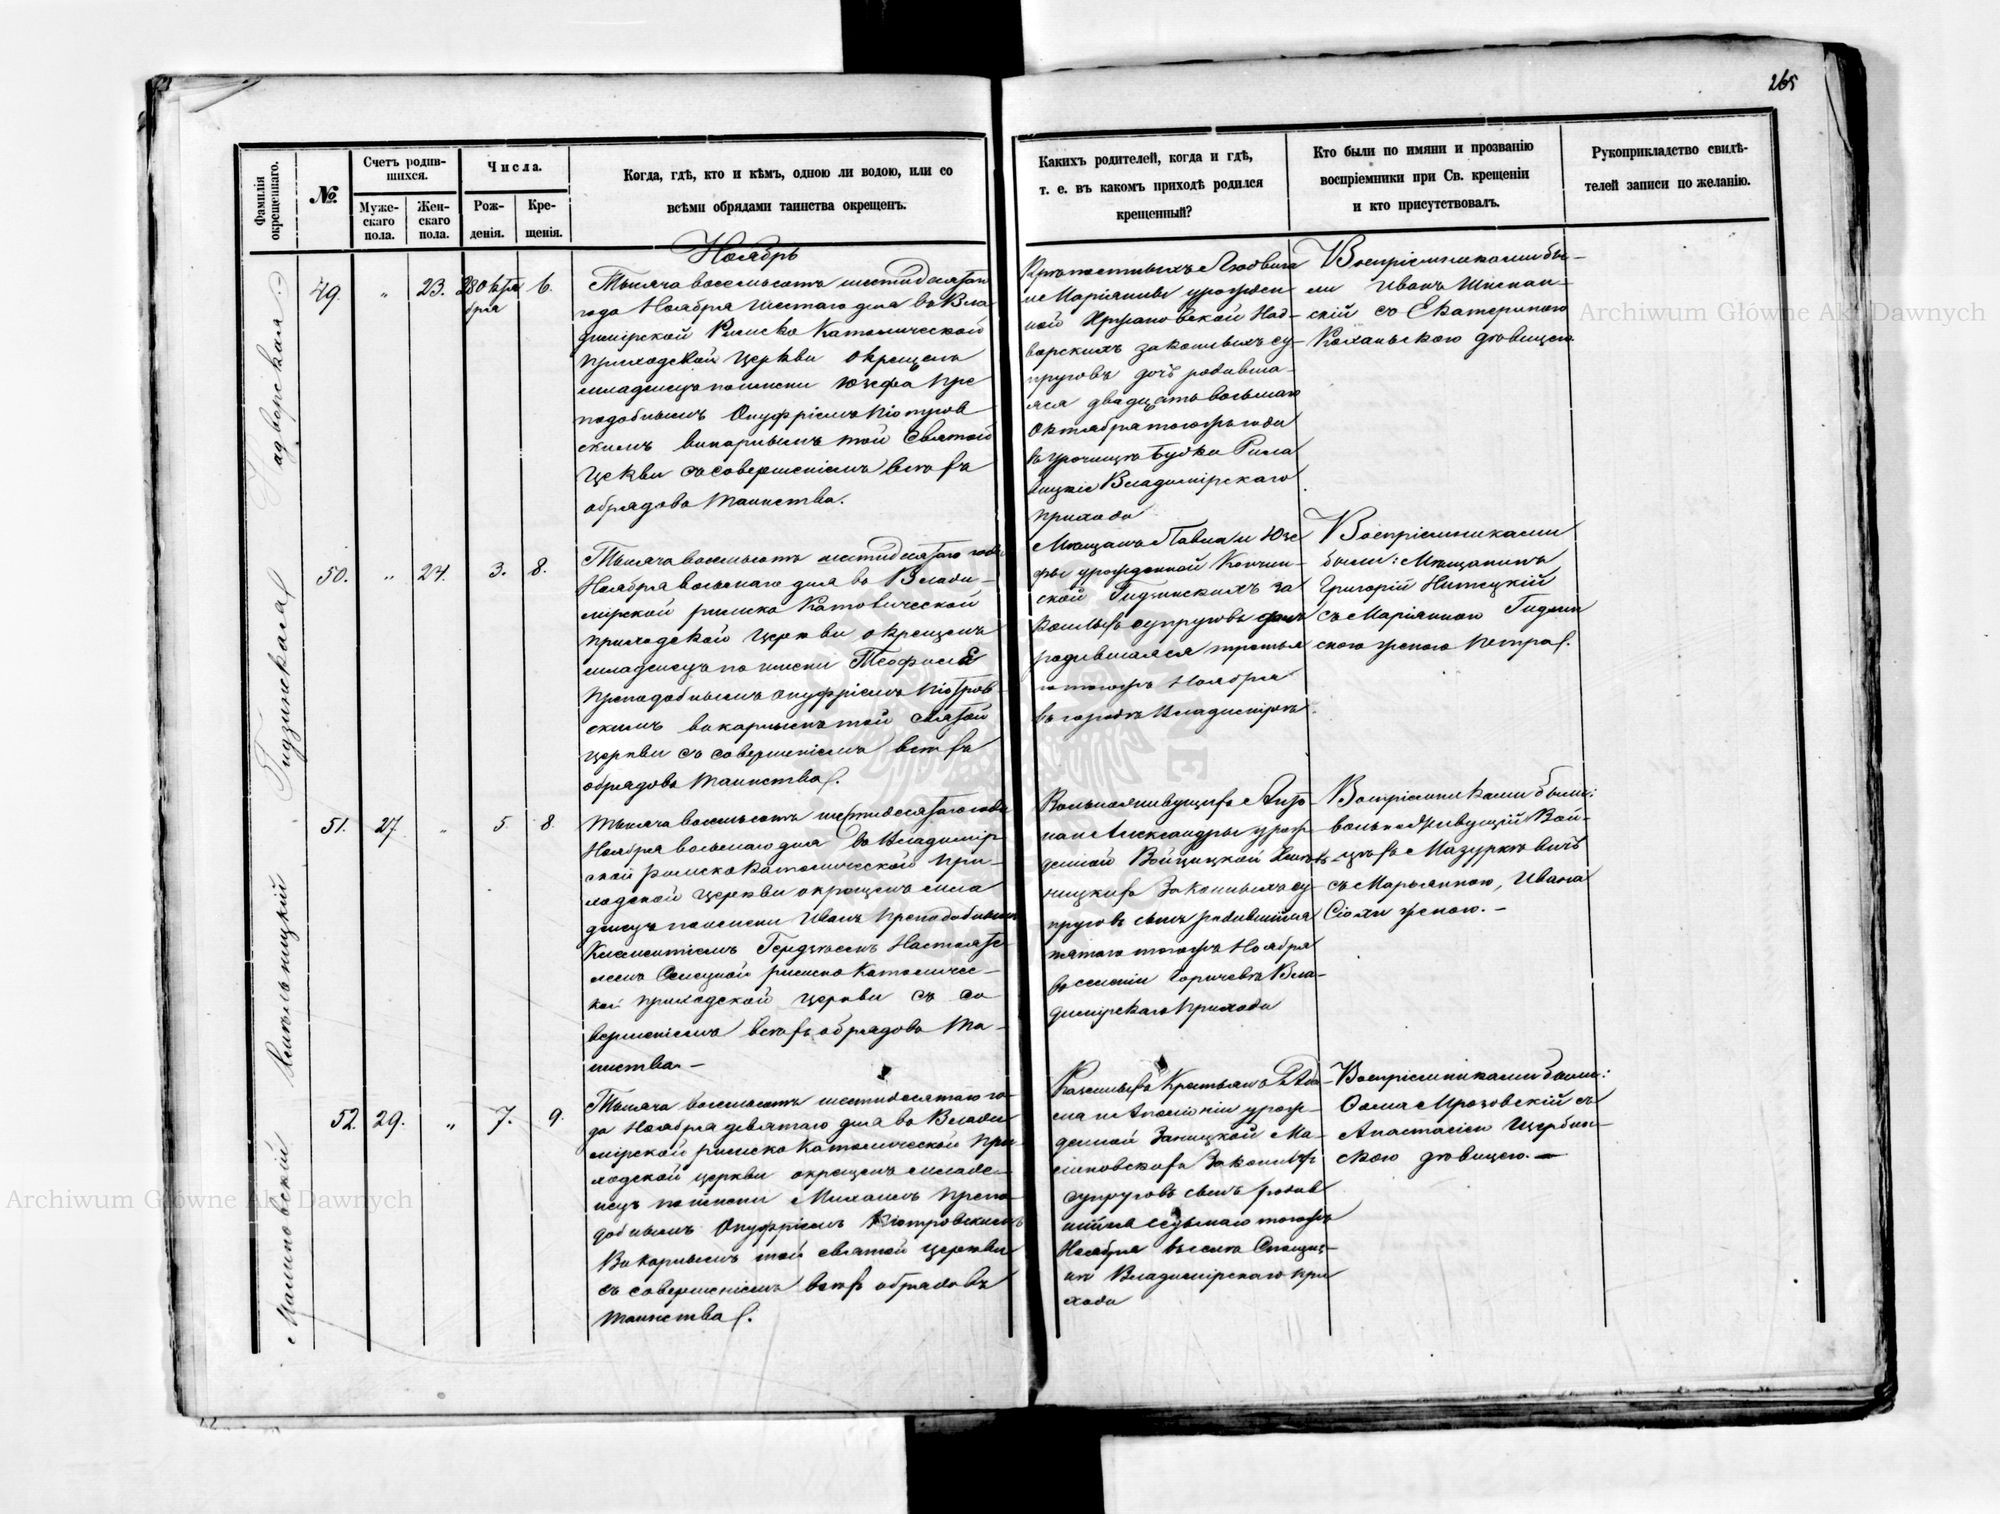 265
Фамилія окрещеннаго.
№.
Счетъ родив-
шихся.
Муже-
скаго
пола.
Жен-
скаго
пола.
Числа.
Рож-
денія.
Кре-
щенія.
Когда, гдѣ, кто и кѣмъ, одною ли водою, или со
всѣми обрядами таинства окрещенъ.
Какихъ родителей, когда и гдѣ,
т. е. въ какомъ приходѣ родился
крещенный?
Кто были по имяни и прозванію
воспріемники при Св. крещеніи
и кто присутствовалъ.
Рукоприкладство свидѣ-
телей записи по желанію.
Ноябрь
Надворская
49.
"
23.
28 Октя
бря
6.
Тысяча восемьсотъ шестидесятаго
года Ноября шестаго дня во Вла
димірской Римско Католической
приходской Церкви окрещенъ
младенецъ по имени Юзефа пре
подобнымъ Онуфріемъ Піотров
скимъ викарнымъ той Святой
Цекви съ совершеніемъ всѣхъ
обрядовъ Таинства.
Людвига
и Маріянны урожден
ной Над-
ворскихъ законныхъ су-
пруговъ дочь родивша-
яся двадцать восьмаго
Октября тогожъ года
въ урочищѣ Будки
Владимірскаго
прихода
Воспріемниками бы-
ли Иванъ
скій съ Екатериною
дѣвицею
Гидзинская
50.
"
24.
3.
8.
Тысяча восемьсотъ шестидесятаго года
Ноября восьмаго дня во Влади-
мірской римско Католической
приходской Церкви окрещенъ
младенецъ по имени Теофиля
Преподобнымъ Онуфріемъ Піотров
скимъ викарнымъ той святой
церкви съ совершеніемъ всѣхъ
обрядовъ Таинства.
Мѣщанъ Павла и Юзе
фы урожденной
ской Гидзинскихъ за
конныхъ супруговъ дочь
родившаяся третья
го тогожъ Ноября
въ городѣ Владимірѣ.
Воспріемниками
были: Мѣщанинъ
Григорій Нитецкій
съ Маріянною Гидзин
скою женою Петра.
51.
27.
"
5.
8.
Тысяча восемьсотъ шестидесятаго года
Ноября восьмаго дня во Владимір
ской римско Католической при-
ходской Церкви окрещенъ мла
денецъ по имени Иванъ Преподобнымъ
Климентіемъ Настояте
лемъ римско Католичес-
кой приходской церкви съ со
вершеніемъ всѣхъ обрядовъ Та-
инства. –
Вольноживущихъ Анто
на и Александры урож
денной Войцицкой
ницкихъ Законныхъ су-
пруговъ сынъ родившійся
пятаго тогожъ Ноября
въ селеніи Вла-
димірскаго прихода
Воспріемниками были:
вольноживущій Вой-
цѣхъ Мазуркевичъ
съ Марьянною, Ивана
женою. –
Малиновскій
52.
29.
"
7.
9.
Тысяча восемьсотъ шестидесятаго го-
да Ноября девятаго дня во Влади
мірской римско Католической при
ходской церкви окрещенъ младе-
нецъ по имени Михаилъ Препо
добнымъ Онуфріемъ Піотровскимъ
Викарнымъ той святой церкви
съ совершеніемъ всѣхъ обрядовъ
Таинства.
Казенныхъ Крестьянъ
ма и Аполоніи урож-
денной Ма-
линовскихъ Законныхъ
супруговъ сынъ родив
шійся седьмаго тогожъ
Ноября въ селѣ
Владимірскаго при
хода
Воспріемниками были:
Ѳома Мрозовскій съ
Анастасіею Щербин-
скою дѣвицею. –
Archiwum Główne Akt Dawnych
Archiwum Główne Akt Dawnych